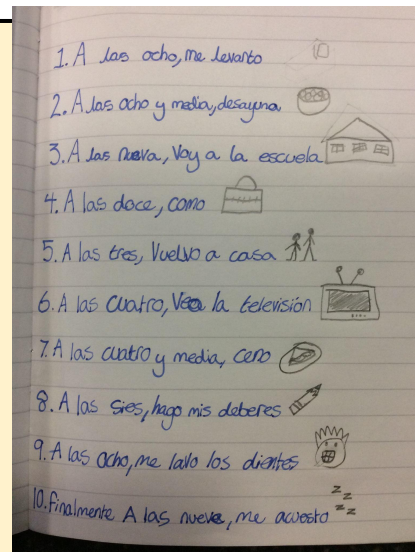 1. A las ocho, me levanto
2. A las ocho y media, desayuna
3. A las nueva, Voy a la escuela
4. A las doce, como
5. A las tres, Vuelvo a casa
6. A las cuatro, Veo la televisión
7. A las cuatro y media, ceno
8. A las sies, hago mis deberes
9. A las ocho, me lavo los dientes
10. Finalmente A las nueve, me acuesto
z z
z z